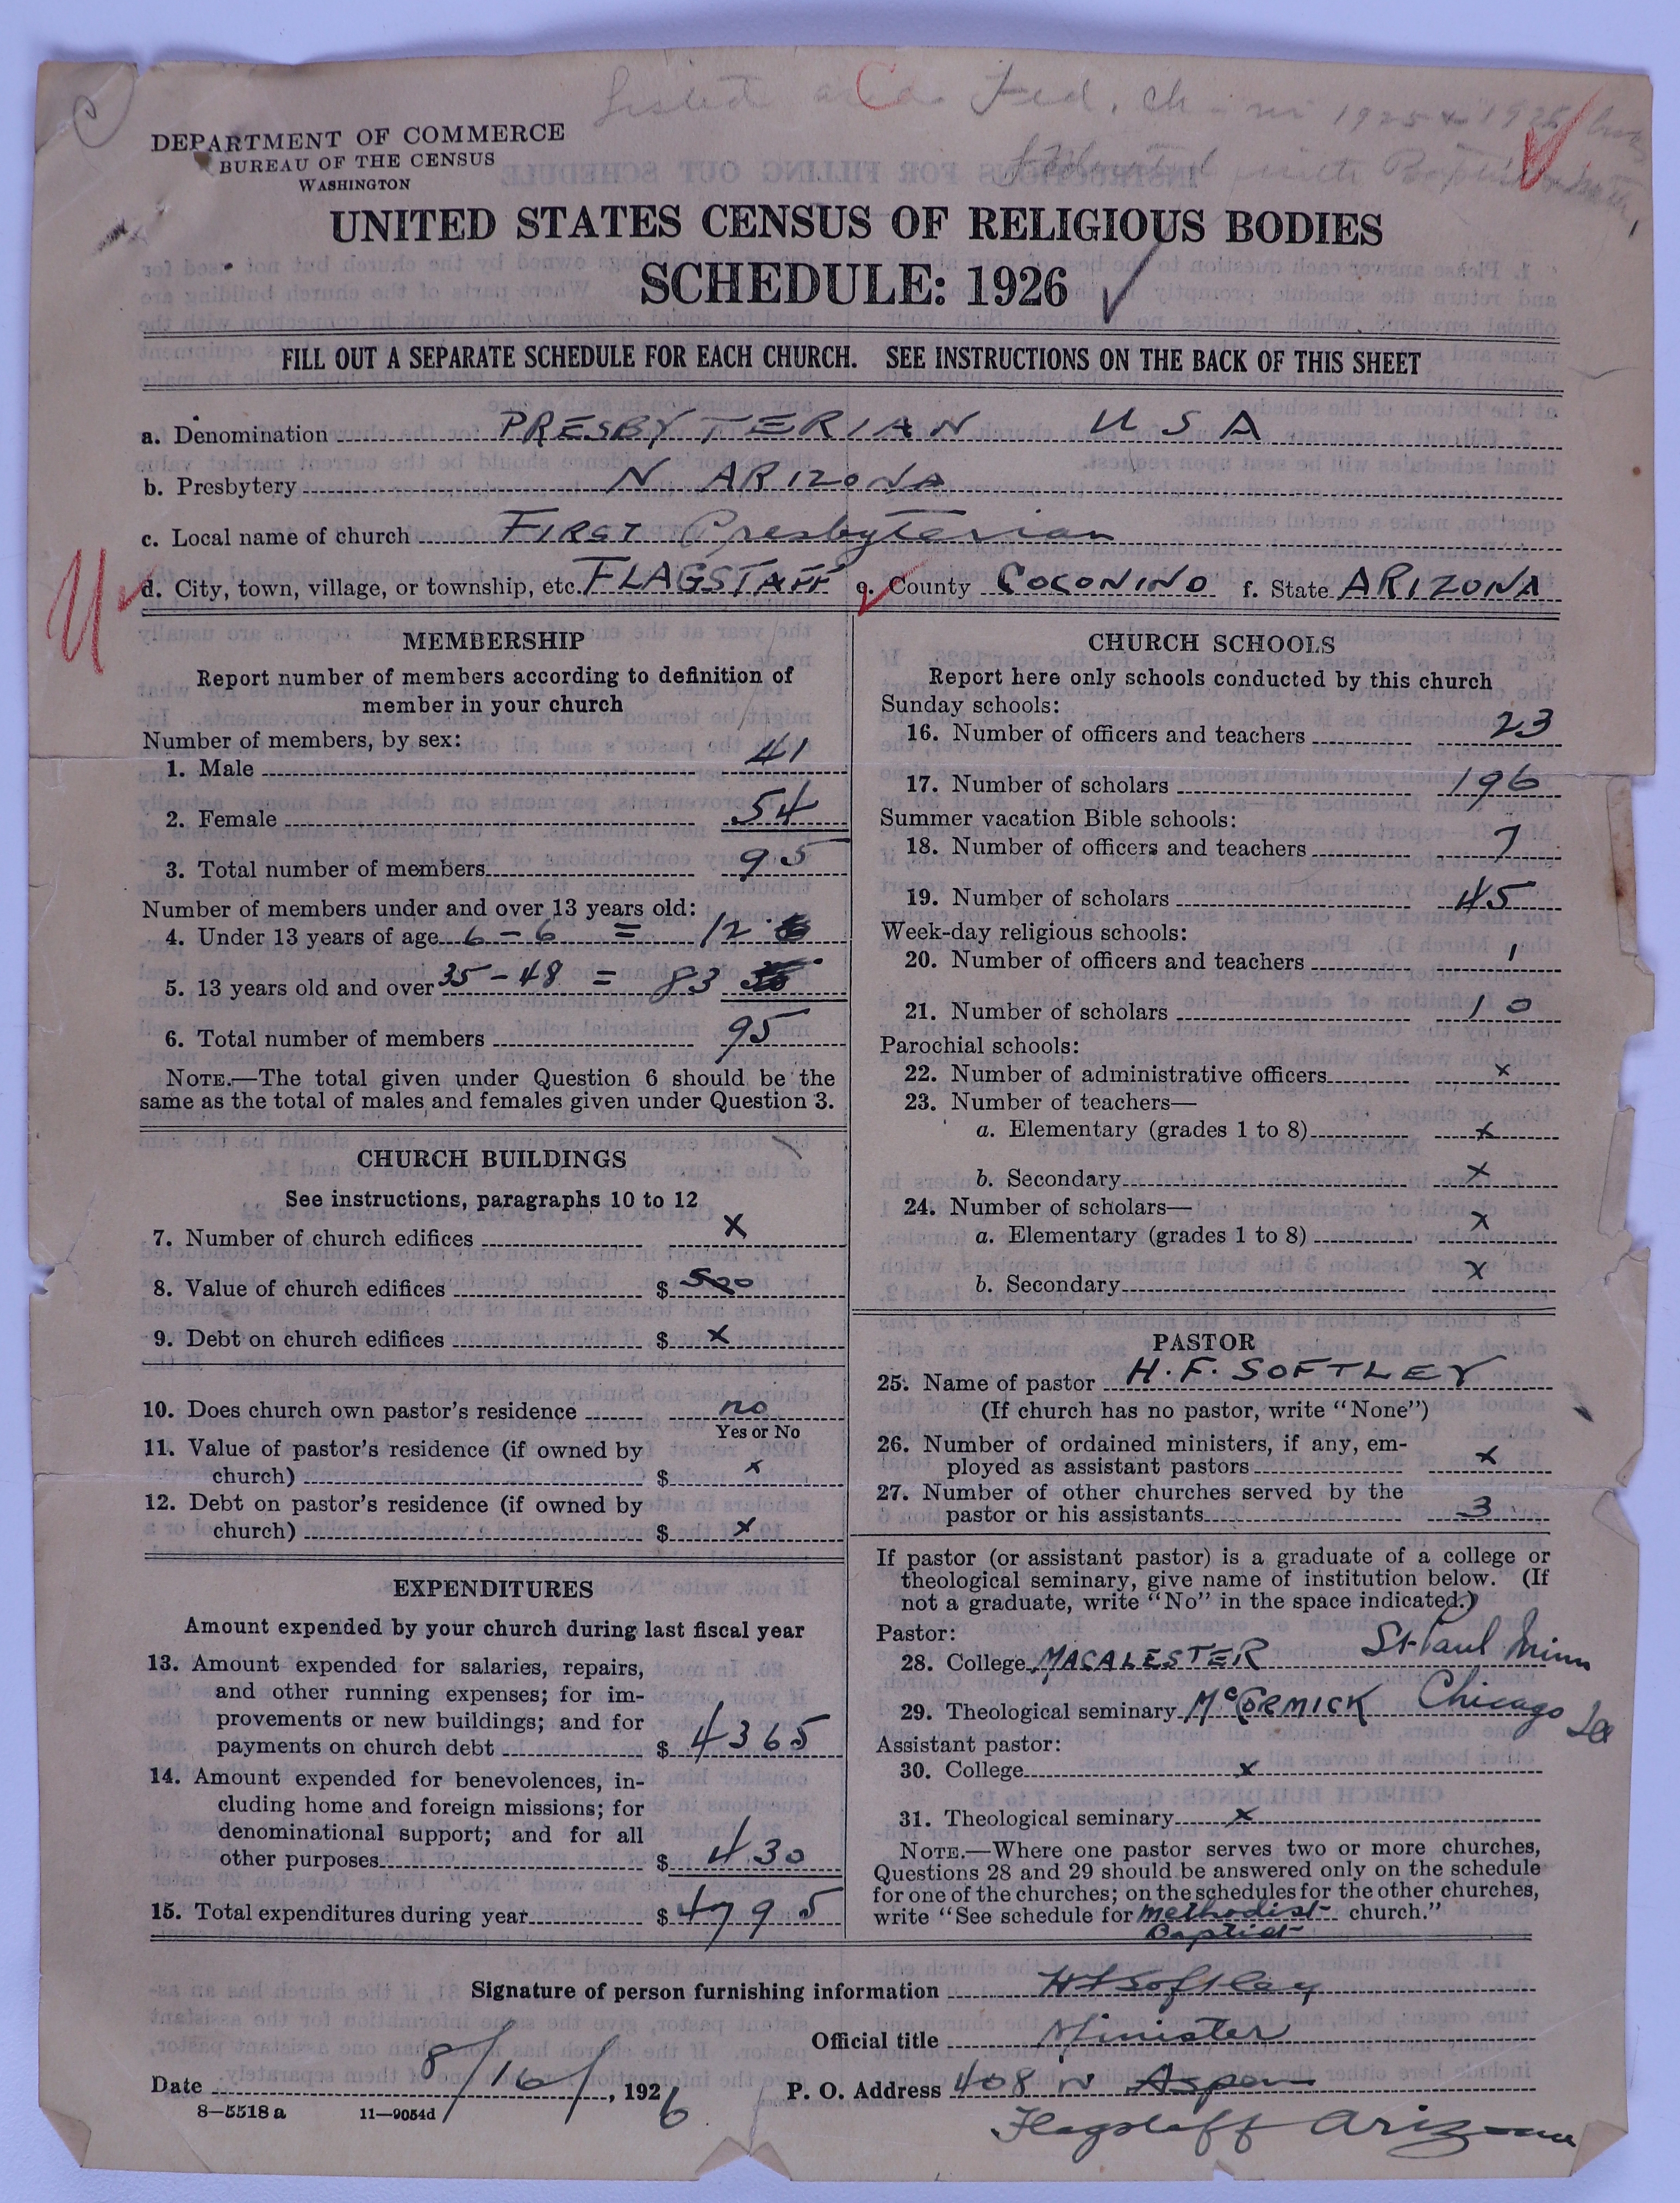 C
Listed as a Fed. Ch in 1925 & 1926
Federated with Baptist
DEPARTMENT OF COMMERCE
BUREAU OF THE CENSUS
WASHINGTON
UNITED STATES CENSUS OF RELIGIOUS BODIES
SCHEDULE: 1926
FILL OUT A SEPARATE SCHEDULE FOR EACH CHURCH. SEE INSTRUCTIONS ON THE BACK OF THIS SHEET
a. Denomination PRESBYTERIAN USA
b. Presbytery N ARIZONA
c. Local name of church FIRST Presbyterian
d. City, town, village, or township, etc. FLAGSTAFF e. County COCONINO f. State ARIZONA
MEMBERSHIP
Report number of members according to definition of
member in your church
Number of members, by sex:
1. Male 41
2. Female 54
3. Total number of members 95
Number of members under and over 13 years old:
4. Under 13 years of age 6 - 6 = 12
5. 13 years old and over 35 - 48 = 83
6. Total number of members 95
NOTE.—The total given under Question 6 should be the
same as the total of males and females given under Question 3.
CHURCH BUILDINGS
See instructions, paragraphs 10 to 12
7. Number of church edifices x
8. Value of church edifices $ 500
9. Debt on church edifices $ x
10. Does church own pastor's residence no
Yes or No
11. Value of pastor's residence (if owned by
church) $ x
12. Debt on pastor's residence (if owned by
church) $ x
EXPENDITURES
Amount expended by your church during last fiscal year
13. Amount expended for salaries, repairs,
and other running expenses; for im-
provements or new buildings; and for
payments on church debt $ 4365
14. Amount expended for benevolences, in-
cluding home and foreign missions; for
denominational support; and for all
other purposes $ 430
15. Total expenditures during year $ 4795
CHURCH SCHOOLS
Report here only schools conducted by this church
Sunday schools:
16. Number of officers and teachers 23
17. Number of scholars 196
Summer vacation Bible schools:
18. Number of officers and teachers 7
19. Number of scholars 45
Week-day religious schools:
20. Number of officers and teachers 1
21. Number of scholars 10
Parochial schools:
22. Number of administrative officers x
23. Number of teachers—
a. Elementary (grades 1 to 8) x
b. Secondary x
24. Number of scholars—
a. Elementary (grades 1 to 8) x
b. Secondary x
PASTOR
25. Name of pastor H. F. SOFTLEY
(If church has no pastor, write "None")
26. Number of ordained ministers, if any, em-
ployed as assistant pastors x
27. Number of other churches served by the
pastor or his assistants 3
If pastor (or assistant pastor) is a graduate of a college or
theological seminary, give name of institution below. (If
not a graduate, write "No" in the space indicated.)
Pastor:
28. College MACALESTER St Paul Minn
29. Theological seminary McCORMICK Chicago Ill
Assistant pastor:
30. College x
31. Theological seminary x
NOTE.—Where one pastor serves two or more churches,
Questions 28 and 29 should be answered only on the schedule
for one of the churches; on the schedules for the other churches,
write "See schedule for Methodist church."
Baptist
Signature of person furnishing information HFSoftley
Official title Minister
Date 8/16/, 1926 P. O. Address 408 N Aspen
8—5518a 11—9054d
Flagstaff Arizona